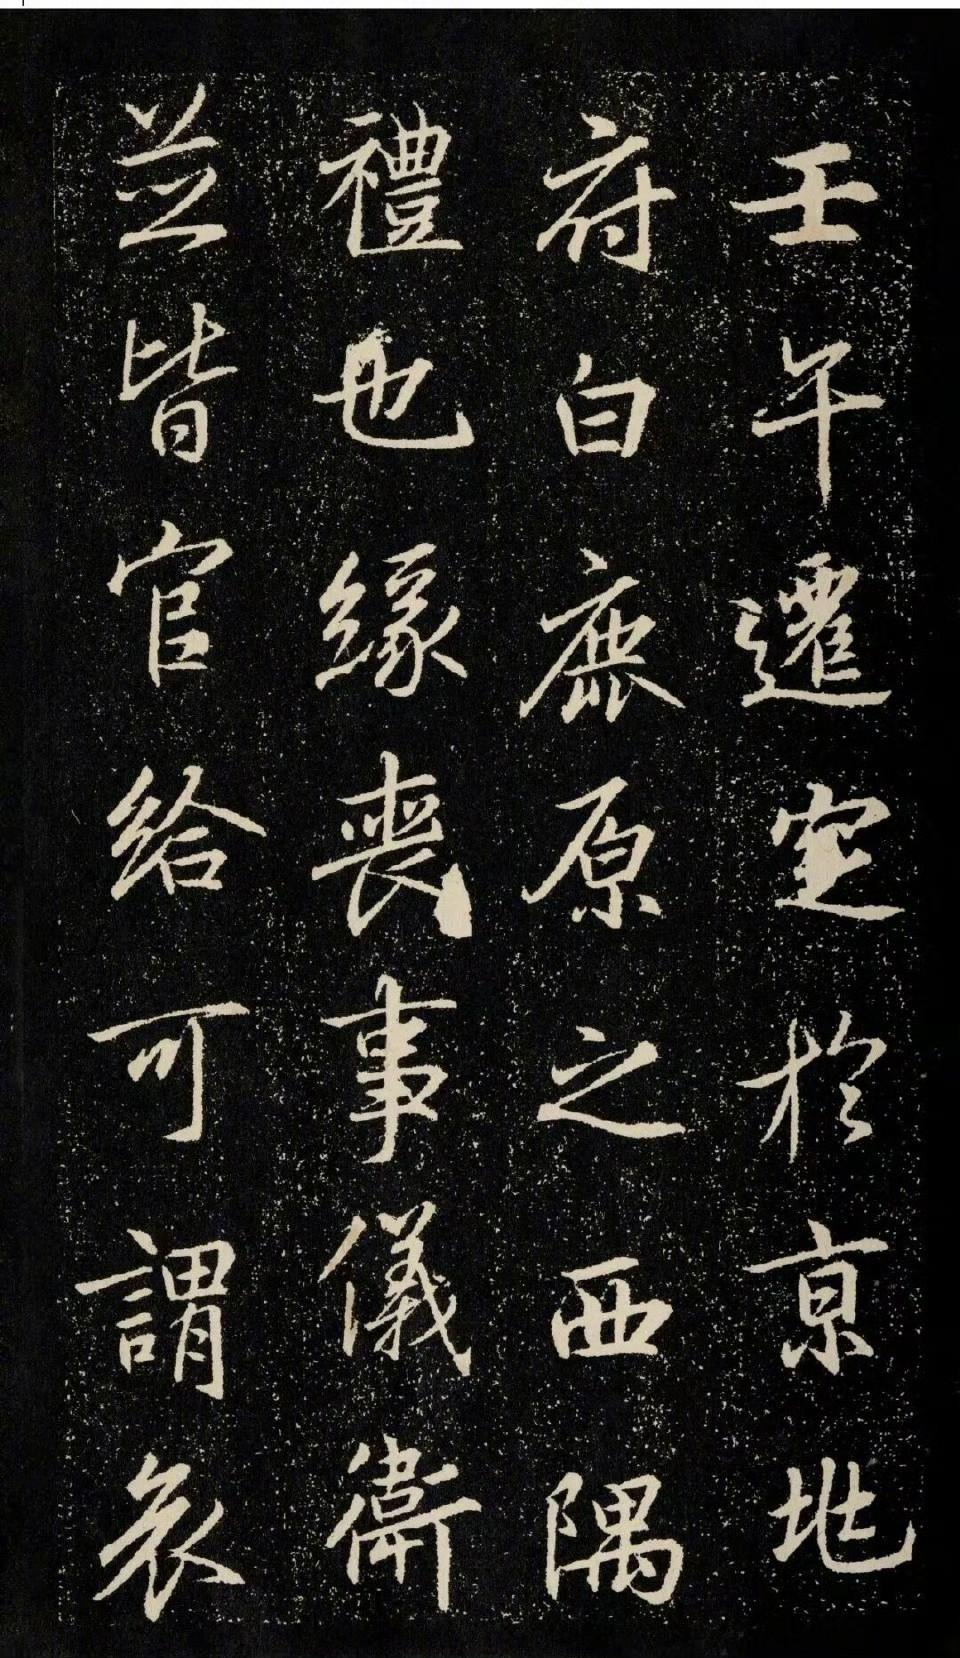 壬午遷窆於京地
府白鹿原之西隅
禮也緣喪事儀衛
並皆官給可謂哀